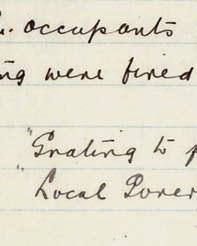 occupants
ng were fired
"Grating to p
"Local Gover